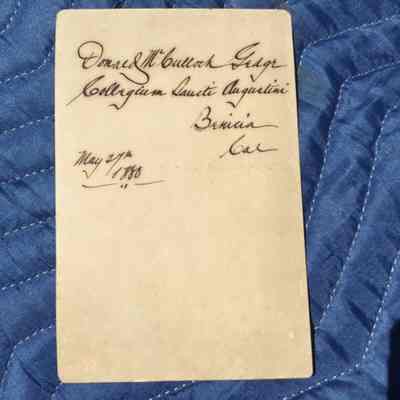 Donald McCulloch Gedge
Collegium Sancti Augustini
Benicia
Cal
May 27th
1880
"